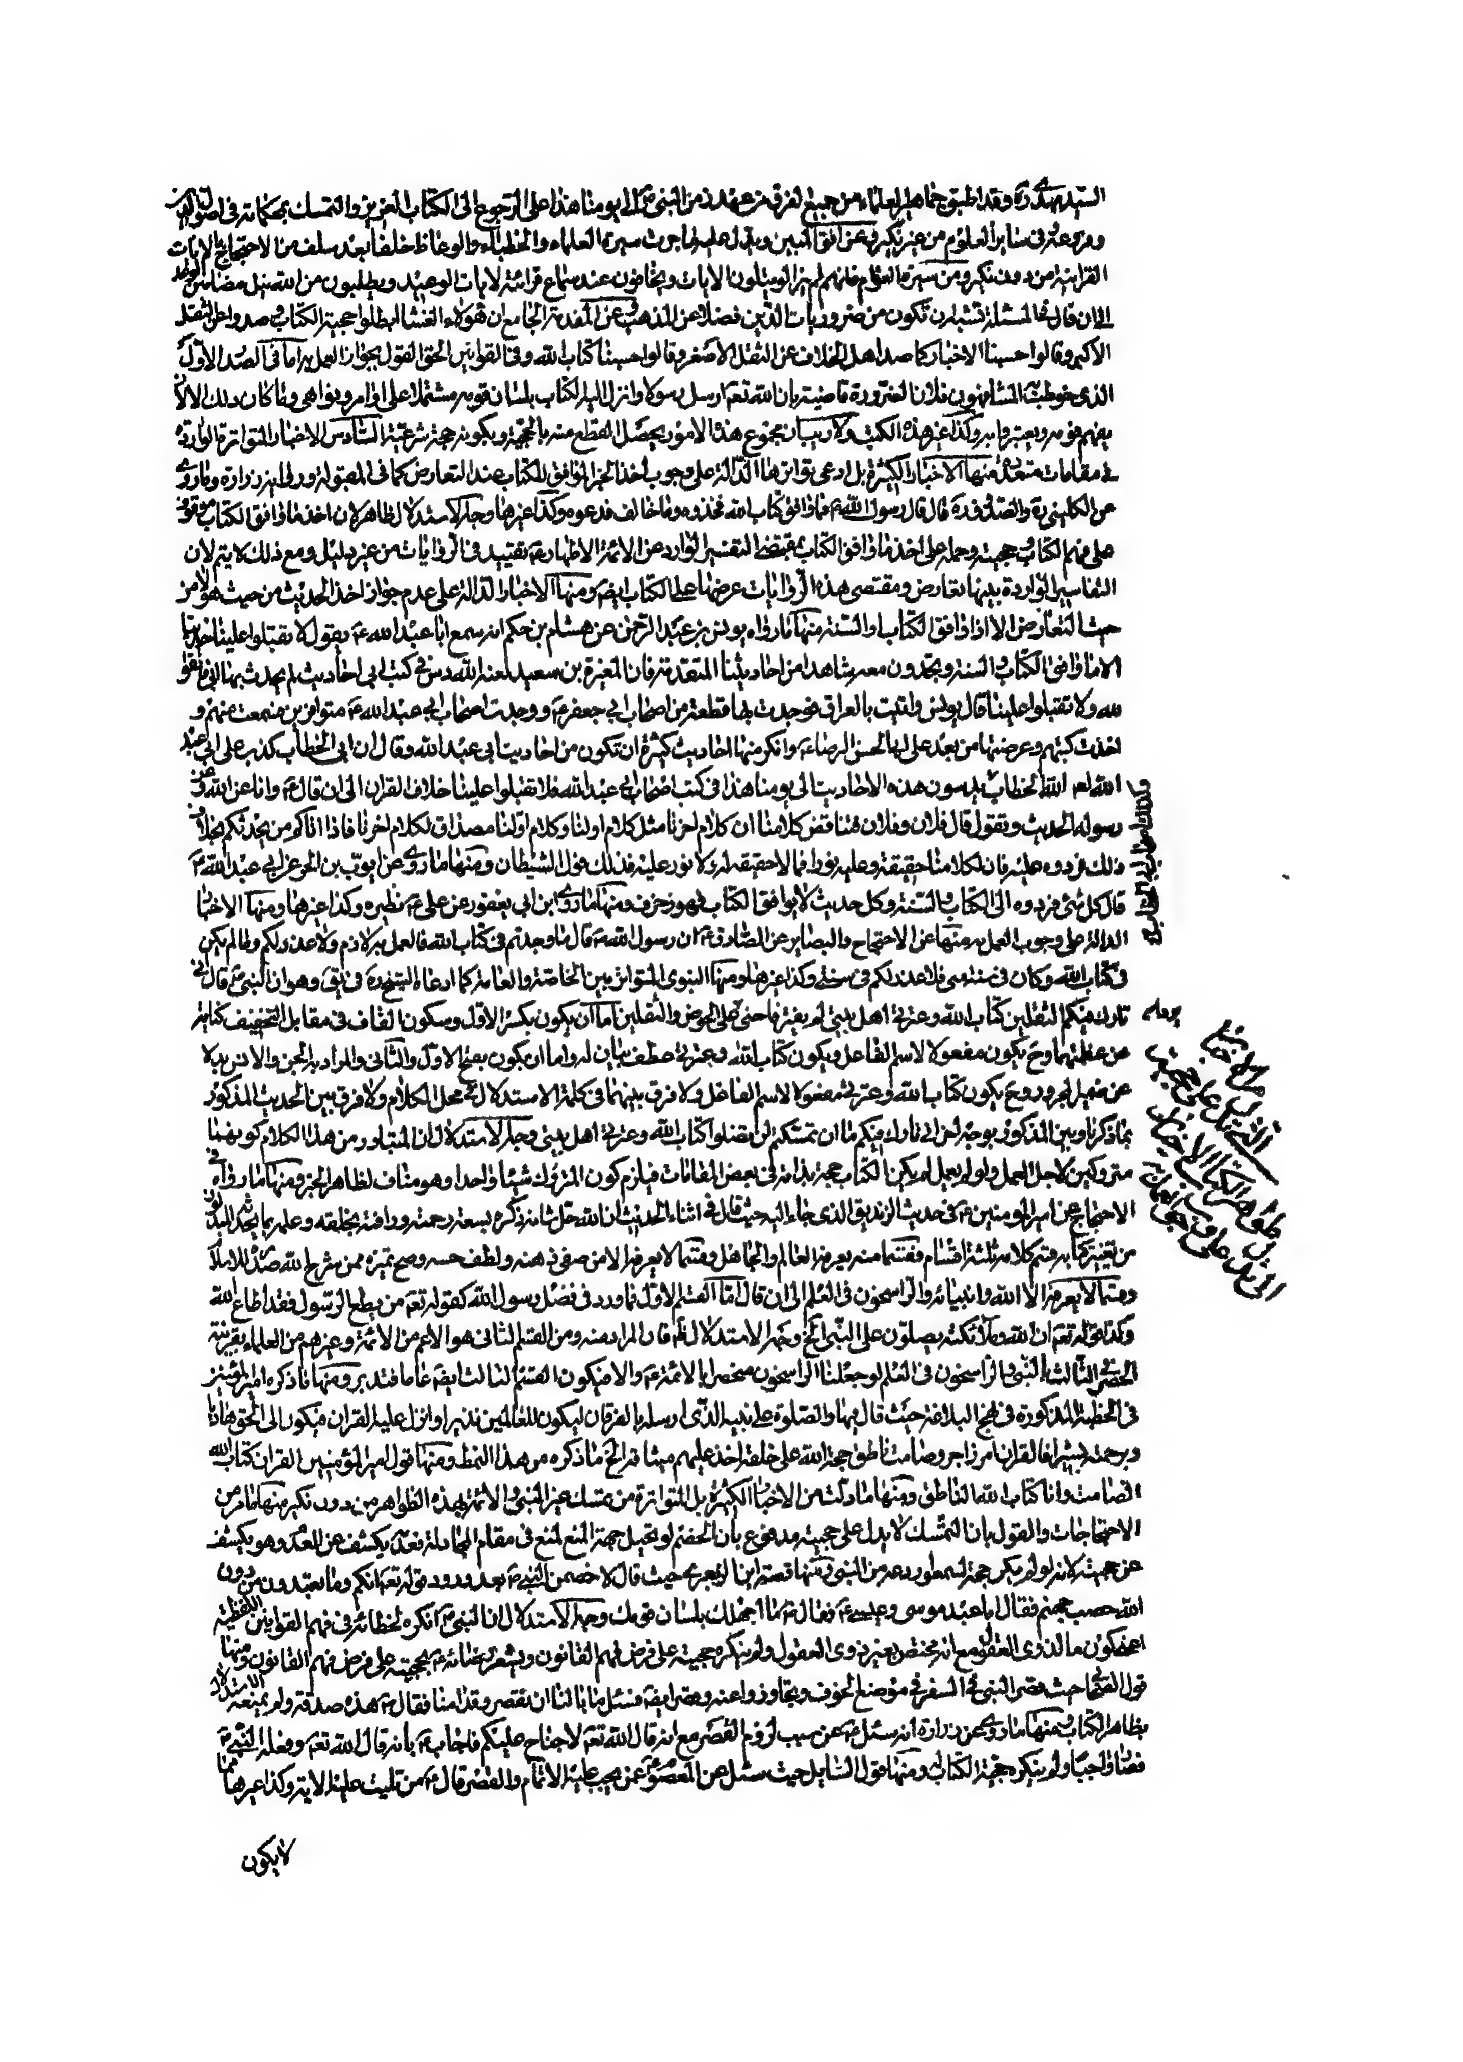 السيد صدره وقد اطبق جماهير العلماء من جميع الفرق من عهد زمن النبي ص الى يومنا هذا على الرجوع الى الكتاب العزيز والتمسك بمحكماته في اصول الدين
وفروعه وفي سائر العلوم من غير نكير وعن افق المبين ويدل عليه ما جرت سيرة العلماء والخطباء والوعاظ خلفا بعد سلف من الاحتجاج بالايات
القرانية من دون نكير ومن سيرة العوام فانهم لم يزالوا يتلون الايات ويخافون عند سماع قرائة لايات الوعيد ويطلبون من الله نيل مضامين الوعد
الى ان قال فالمسئلة تشبه ان تكون من ضروريات الدين فضلا عن المذهب وعن المقدمة الجامع ان هؤلاء ابطلوا حجية الكتاب و صدوا عن الثقل
الاكبر وقالوا حسبنا الاخبار كما صد اهل الخلاف عن الثقل الاصغر وقالوا حسبنا كتاب الله وفي القوانين الحق القول بجواز العمل به اما في الصدر الاول
الذي خوطب به المشافهون فلان الضرورة قاضية بان الله تعه ارسل رسولا وانزل اليه الكتاب بلسان قومه مشتملا على اوامر ونواهي وما كان ذلك الا لان
يفهم قومه ويعتبروا به وكذا غير هذه الكتب ولا ريب ان مجموع هذا الامور يحصل القطع منه بالحجية ويكونه حجة شرعية السادس الاخبار المتواترة الواردة
في مقامات متعددة منها الاخبار الكثيرة بل ادعى تواترها الدالة على وجوب اخذ الخبر الموافق للكتاب عند التعارض كما في المقبولة ورواية زرارة وما روى
عن الكليني ره والصدوق ره قال قال رسول الله ص فما وافق كتاب الله فخذوه وما خالف فدعوه وكذا غيرها وجه الاستدلال ظاهر لان اخذ ما وافق الكتاب موقوف
على فهم الكتاب و حجيته وحمله على اخذ ما وافق الكتاب بمقتضى التفسير الوارد عن الائمة الاطهار ع تقييد في الروايات من غير دليل ومع ذلك لا يتم لان
التفاسير الواردة بينها تعارض ومقتضى هذه الروايات عرضها على الكتاب ايضا ومنها الاخبار الدالة على عدم جواز اخذ الحديث من حيث هو لا من
حيث التعارض الا اذا وافق الكتاب والسنة منها ما رواه يونس بن عبد الرحمن عن هشام بن حكم انه سمع ابا عبد الله ع يقول لا تقبلوا علينا حديثا
الا ما وافق الكتاب والسنة وتجدون معه شاهدا من احاديثنا المتقدمة فان المغيرة بن سعيد لعنه الله دس في كتب ابي احاديث لم يحدث بها ابي فاتقوا
الله ولا تقبلوا علينا قال يونس وافيت بالعراق فوجدت بها قطعة من اصحاب ابي جعفر ع ووجدت اصحاب ابي عبد الله ع متوافرين فسمعت منهم و
اخذت كتبهم وعرضتها من بعد على ابي الحسن الرضا ع وانكر منها احاديث كثيرة ان تكون من احاديث ابي عبد الله وقال ان ابي الخطاب كذب على ابي عبد
الله لعن الله الخطاب يدسون هذه الاحاديث الى يومنا هذا في كتب اصحاب ابي عبد الله فلا تقبلوا علينا خلاف القران الى ان قال ع وانا عن الله وعن
رسوله الحديث ونقول قال فلان وفلان فتناقض كلامنا ان كلام اخرنا مثل كلام اولنا وكلام اولنا مصداق لكلام اخرنا فاذا اتاكم من يحدثكم بخلاف
ذلك فردوه عليه فان لكلامنا حقيقة وعليه نور فما لا حقيقة له ولا نور عليه فذلك قول الشيطان ومنها ما روى عن ايوب بن الحر عن ابي عبد الله ع
قال كل شئ مردوه الى الكتاب والسنة وكل حديث لا يوافق الكتاب فهو زخرف ومنها ما روى ابن ابي يعفور عن علي ع نظيره وكذا غيرها ومنها الاخبار
الدالة على وجوب العمل به منها عن الاحتجاج والبصائر عن الصادق ع ان رسول الله ص قال ما وجدتم في كتاب الله فالعمل به لازم ولا عذر لكم وما لم يكن
في كتاب الله وكان في سنة مني فلا عذر لكم في سنتي وكذا غيرها ومنها النبوي المتواتر بين الخاصة والعامة كما ادعاه الشيخ ره وهو ان النبي ص قال اني
تارك فيكم الثقلين كتاب الله وعترتي اهل بيتي لم يفترقا حتى يردا على الحوض والثقلين اما ان يكون بكسر الاول وسكون القاف في مقابل التخفيف كناية
عن عظمتهما وح يكون مفعولا لاسم الفاعل ويكون كتاب الله وعترتي عطف بيان له واما ان يكون بفتح الاول والثاني والمراد به الجن والانس بدلا
عن ضمير المجرور وح يكون كتاب الله وعترتي مفعولا لاسم الفاعل ولا فرق بينهما في كلمة الاستدلال في محل الكلام ولا فرق بين الحديث المذكور
بما ذكرنا وبين المذكور بوجه اخر اني تارك فيكم ما ان تمسكتم لن تضلوا كتاب الله وعترتي اهل بيتي وجه الاستدلال ان المتبادر من هذا الكلام كونهما
متروكين لاجل العمل ولو لم يعمل لم يكن الكتاب حجة بذاته في بعض المقامات فيلزم كون المتروك شيئا واحدا وهو مناف لظاهر الخبر ومنها ما رواه في
الاحتجاج عن امير المومنين ع في حديث الزنديق الذي جاء اليه حيث قال في اثناء الحديث ان الله جل شانه ذكره بسعة رحمته ورافته بخلقه وعلمه بما يحدثه المبدلون
من تغيير كتابه قسم كلامه ثلثة اقسام فقسما منه يعرفه العالم والجاهل وقسما لا يعرفه الا من صفى ذهنه ولطف حسه وصح تميزه ممن شرح الله صدره للاسلام
وقسما لا يعرفه الا الله وانبيائه والراسخون في العلم الى ان قال اما القسم الاول فما ورد في فضل رسول الله كقوله تعه من يطع الرسول فقد اطاع الله
وكذا قوله تعه ان الله وملائكته يصلون على النبي الخ وجه الاستدلال فان المراد منه ومن القسم الثاني هو الاعم من الائمة وغيرهم من العلماء بقرينة
الحصر في الثالث بالنبي والراسخون في العلم لو جعلنا الراسخون منحصرا بالائمة ع والا فيكون القسم الثالث ايضا عاما فتدبر ومنها ما ذكره امير المؤمنين
في الخطبة المذكورة في نهج البلاغة حيث قال فيها والصلوة على نبيه الذي ارسله بالفرقان ليكون للعالمين نذيرا وانزل عليه القران ليكون الى الحق هاديا
وبرحمته بشيرا فالقران امر زاجر وصامت ناطق حجة الله على خلقه اخذ عليهم ميثاقه الخ ما ذكره من هذا النمط ومنها قول امير المؤمنين القران كتاب الله
الصامت وانا كتاب الله الناطق ومنها ما دلت من الاخبار الكثيرة بل المتواترة من تمسك غير النبي والائمة بهذه الظواهر من دون نكير منها ما مر من
الاحتجاجات والقول بان التمسك لا يدل على حجيته مدفوع بان الخصم لو تخيل جهة المنع لمنع في مقام المجادلة فعدمه يكشف عن العدم وهو يكشف
عن حجيته لانه لو لم يكن حجة لسمع ردعه من النبي ومنها قصة ابن الزبعرى حيث قال لاخصمن النبي ص بعد ورود قوله تعه انكم وما تعبدون من دون
الله حصب جهنم فقال اما عبد موسى وعيسى ع فقال ص ما اجهلك بلسان قومك وجه الاستدلال ان النبي ص انكره لخطائه في فهم القوانين اللفظية
اعني كون ما لذوى العقول مع انه مختص بغير ذوى العقول ولم ينكره حجيته على فرض فهم القانون ويشعر عتابه ص بحجيته على فرض فهم القانون ومنها
قول الصحابي حيث قصر النبي في السفر في موضع الخوف وتجاوز واعنه وقصر ايضا فسئل ما بالنا ان نقصر وقد امنا فقال ص هذه صدقة ولم يمنعه الاستدلال
بظاهر الكتاب ومنها ما روى عن زرارة انه سئل ع عن سبب لزوم القصر مع انه قال الله تعه لا جناح عليكم فاجاب ع بانه قال الله تعه وفعله النبي ص
فصار واجبا ولم ينكره حجية الكتاب ومنها قول السايل حيث سئل عن المعصوم ع عمن يجب عليه الاتمام والقصر قال ع من تليت عليه الاية وكذا غيرها مما
لا يكون